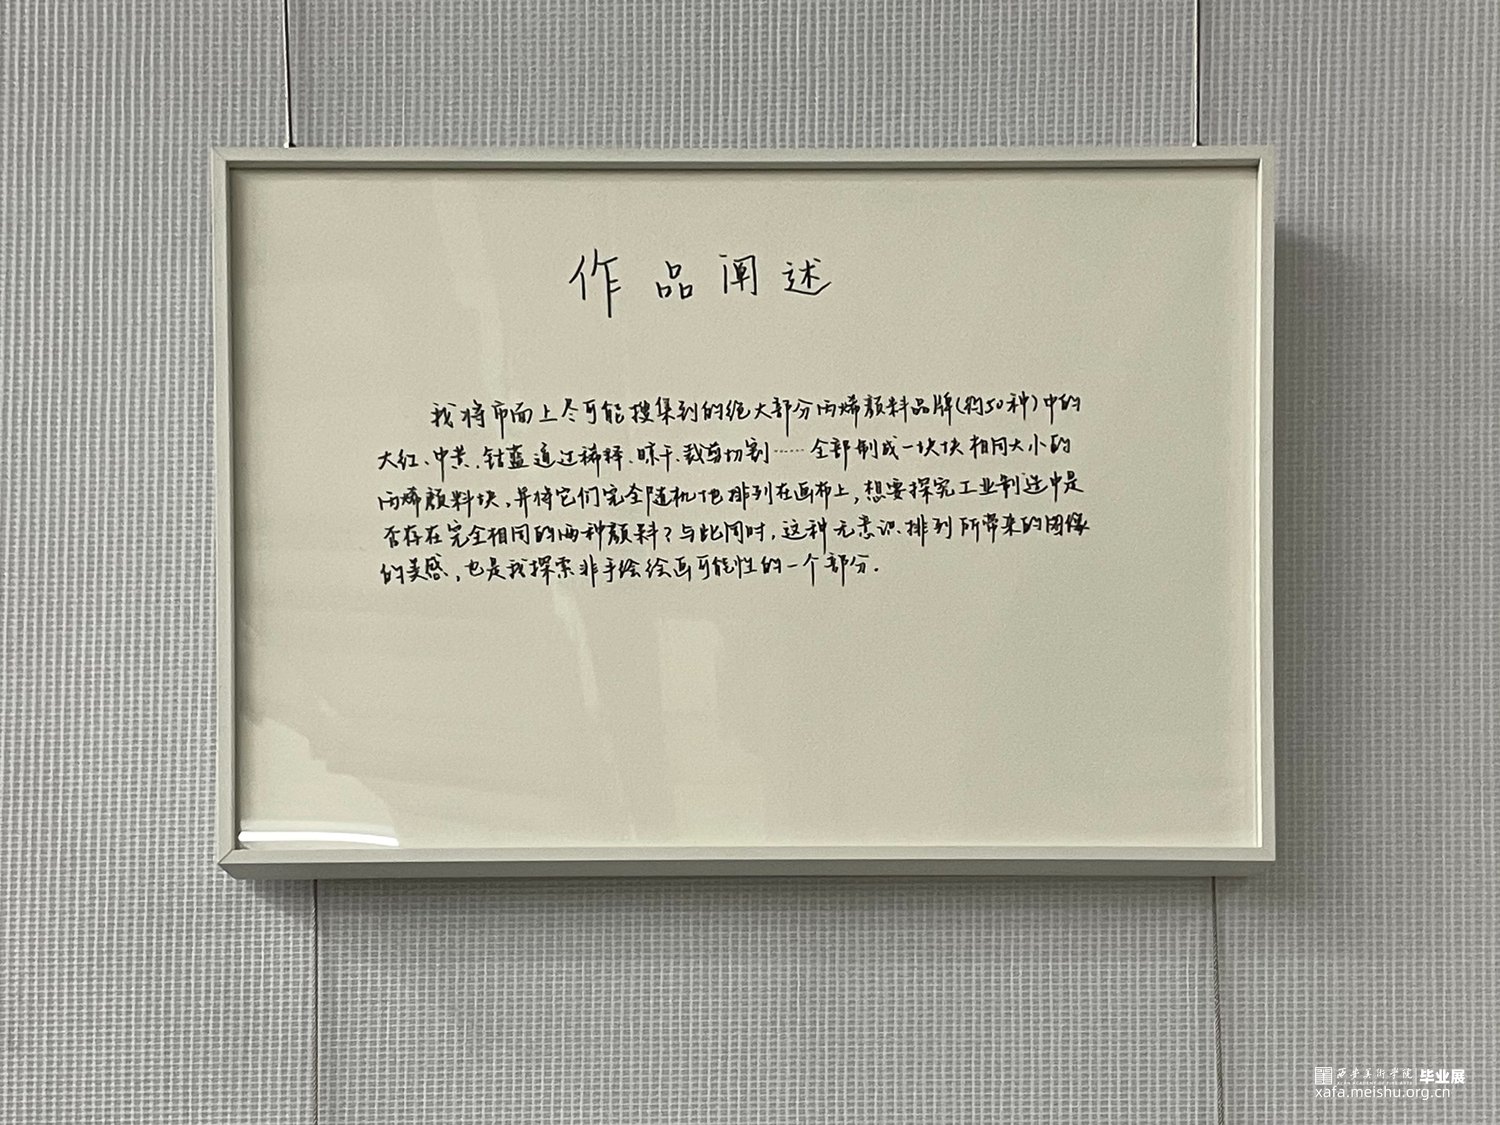 作品阐述
我将市面上尽可能搜集到的绝大部分丙烯颜料品牌(约50种)中的
大红、中黄、钴蓝通过稀释、晾干、裁剪切割……全部制成一块块相同大小的
丙烯颜料块，并将它们完全随机地排列在画布上，想要探究工业制造中是
否存在完全相同的两种颜料？与此同时，这种无意识排列所带来的图像
的美感，也是我探索非手绘绘画可能性的一个部分.
西安美术学院 毕业展
xafa.meishu.org.cn